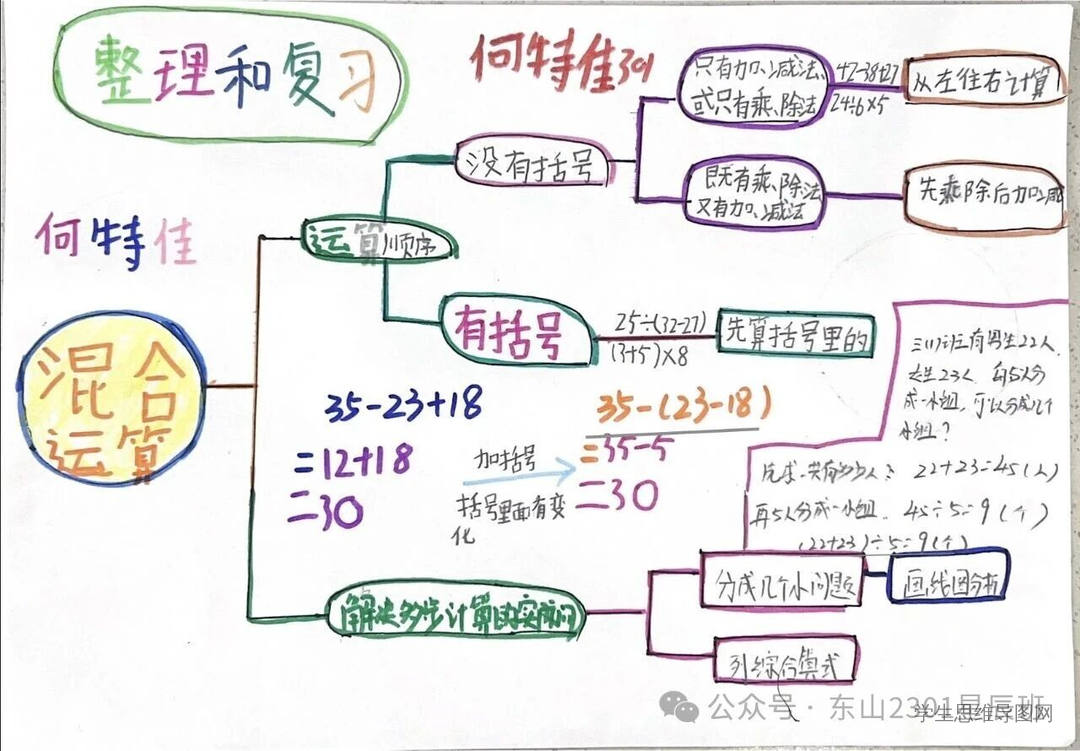 整理和复习
何特佳 301
何特佳
混合
运算
运算顺序
没有括号
只有加、减法、
或只有乘、除法
42-38+27
24÷6×5
从左往右计算
既有乘、除法
又有加、减法
先乘除后加减
有括号
25÷(32-27)
(3+5)×8
先算括号里的
35-23+18
=12+18
=30
加括号
括号里面有变
化
35-(23-18)
=35-5
=30
三(1)班有男生22人,
女生23人,每5人分
成一小组,可以分成几个
小组?
先求一共有多少人? 22+23=45(人)
再5人分成一小组. 45÷5=9(个)
(22+23)÷5=9(个)
解决多步计算的实际问
分成几个小问题
画线图分析
列综合算式
公众号·东山2301星辰班
学生思维导图网